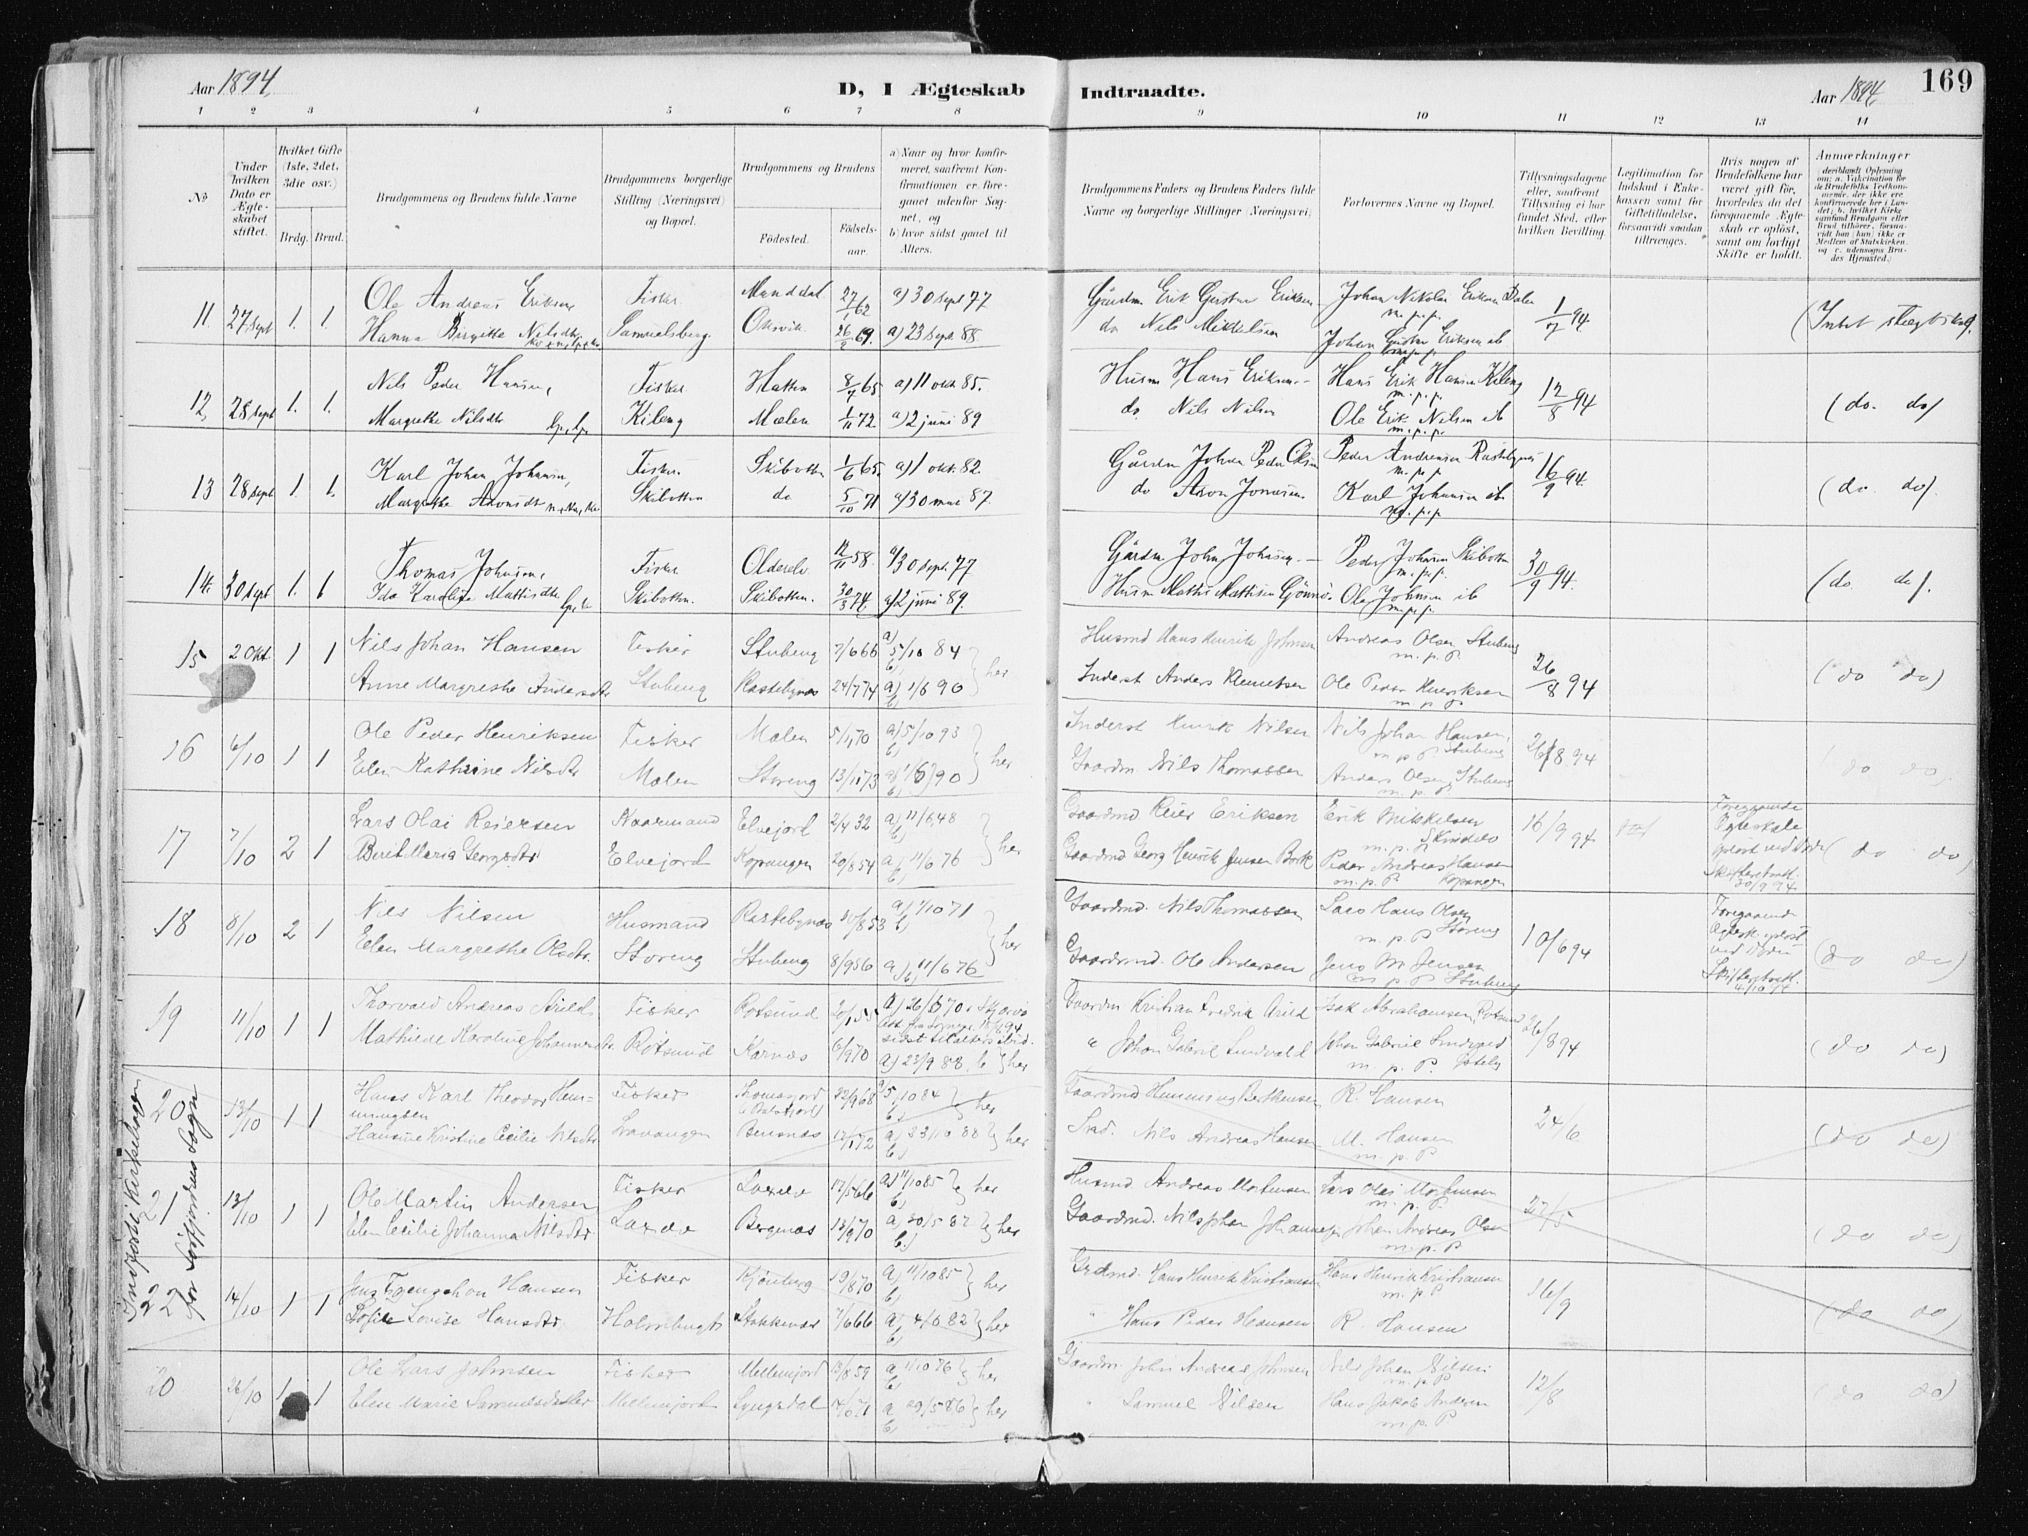 Aar 1894
D, I Ægteskab Indtraadte.
Aar 1894
169
1 2 3 4 5 6 7 8 9 10 11 12 13 14
No
Under hvilken Dato er Ægteskabet stiftet.
Hvilket Gifte (1ste, 2det, 3die osv.)
Brdg. Brud.
Brudgommens og Brudens fulde Navne
Brudgommens borgerlige Stilling (Næringsvei) og Bopæl.
Brudgommens og Brudens
Födested. Födsels-aar.
a) Naar og hvor konfirmeret, saafremt Konfirmationen er foregaaet udenfor Sognet, og
b) hvor sidst gaaet til Alters.
Brudgommens Faders og Brudens Faders fulde Navne og borgerlige Stillinger (Næringsvei)
Forlovernes Navne og Bopæl.
Tillysningsdagene eller, saafremt Tillysning ei har fundet Sted, efter hvilken Bevilling.
Legitimation for Indskud i Enkekassen samt for Giftetilladelse, forsaavidt saadan tiltrænges.
Hvis nogen af Brudefolkene har været gift før, hvorledes da det foregaaende Ægteskab er opløst, samt om lovligt Skifte er holdt.
Anmærkninger
11. 27 sept 1. 1. Ole Andreas Eriksen Fisker Manddal 27/1 62 a) 30 sept 77 Gårdm Erik Gustav Eriksen Johan Nikolai Eriksen m.p.p. 1/7 94 (Intet slægtskab).
Hanna Birgitte Nilsdtr Samuelsberg Oksvik 26/2 69. a) 23 sept 88 do Nils Mikkelsen Johan Gustav Eriksen ib m.p.p.
12, 28 sept 1. 1. Nils Peder Hansen, Fisker Hatten 8/7 65 a) 11 okt. 85. Husm Hans Eriksen Hans Erik Hansen Kileng m.p.p. 12/8 94 (do. do)
Margrethe Nilsdtr Kileng Mælen 1/11 72 a) 2 juni 89 do. Nils Nilsen Ole Erik Nilsen ib m.p.p.
13 28 sept. 1. 1. Karl Johan Johansen, Fisker. Skibotten 1/6 65 a) 1 okt. 82. Gårdm Johan Peder Olsen Peder Andreasen Rastebynes m.p.p. 16/9 94. (do do).
Margrethe Aronsdtr Skibotten do 5/10 71 a) 30 87. do Aron Jonasen. Karl Johansen ib m.p.p.
14. 30 sept 1. 1 Thomas Johnsen, Fisker Olderelv 12/11 58. a) 30 sept. 77 Gårdm John Johnsen. Peder Johnsen Skibotten m.p.p. 30/9 94. (do do).
Ida Karoline Mattisdtr Skibotten. Skibotten. 30/3 74. a) 2 juni 89. Husm Mathis Mathisen Ole Johnsen ib m.p.p.
15 2 Okt. 1 1 Nils Johan Hansen Fisker Stubeng 7/6 66 a) 5/10 84 b) her Husmd Hans Henrik Johnsen Andreas Olsen Stubeng m.p.P. 26/8 94 (do do)
Anne Margrethe Andersdtr Stubeng Rastebynæs 24/7 74 a) 1/6 90 b) Inderst Anders Klemetsen Ole Peder Henriksen m.p.P
16 6/10 1 1 Ole Peder Henriksen Fisker Malen 5/1,70 a) 5/10 93 b) her Inderst Henrik Nilsen Nils Johan Hansen, Stubeng m.p.P 26/8 94 do do
Elen Kathrine Nilsdtr Malen Storeng 13/11 73 a) 1/6 90 b) Gaardm Nils Thomassen Anders Olsen Stubeng m.p.P
17 7/10 2 1 Lars Olai Reiersen Kaarmand Elvejord 2/4 32 a) 11/6 48 b) her Gaardmd Reier Eriksen Erik Mikkelsen m.p.P 16/9 94 Foregaaende Ægteskab opløst ved Døde Skifteattest. 30/9 94 (do do)
Berit Maria Georgsdtr Elvejord Kopangen 20/8 54 a) 11/6 76 b, Gaardmd Georg Henrik Jensen Bork Peder Andreas Hansen m.p.P Kopangen
18 8/10 2 1 Nils Nilsen Husmand Rastebynæs 20/8 53 a) 1/10 71 b) her Gaardmd. Nils Thomassen Lars Hans Olsen Storeng m.p.P 10/6 94 Foregaaende Ægtesk. opløst ved Døden Skifteattest. 4/10 94 (do do)
Elen Margrethe Olsdtr. Storeng Stubeng 8/9 56 a) 11/6 76 b) Gaardmd. Ole Andersen Jens M Jensen m.p.P Stubeng
19 11/10 1 1 Thorvald Andreas Arild Fisker Rotsund 20/1 55 a) 26/6 70 i Skjervø Gaardm Kristian Fredrik Arild Isak Abrahamsen, Rotsund 26/8 94 (do do)
Mathilde Karoline Johannesdtr. Rotsund Karnæs 6/9 70 a) 23/9 88. b) her " Johan Gabriel Lindvald Johan Gabriel Lindvald m.p.P.
20 13/10 1 1 Hans Karl Theodor Henningsen Fisker Thomasjord i Balsfjord 22/9 68 a) 5/10 84 b) her Gaardmd Henning Berthensen R. Hansen 24/6 (do do)
Hansine Kristine Cecilie Nilsdtr Lavangen Bensnæs 17/1 72 a) 23/10 88 b) her Nils Andreas Hansen M. Hansen m.p.P
21 13/10 1 1 Ole Martin Andersen Fisker Laxelv 17/5 66 a) 11/10 85 b) her Husmd Andreas Mortensen Lars Olai Mortensen m.p.P 27/5 (do do)
Elen Cecilie Johanna Nilsdtr. Laxelv Bergnæs 18/9 70 a) 30/5 87 b.) her Gaardmd. Nils Johan Johannesen Johan Andreas Olsen m.p.P
22 14/10 1 1 Jens Hansen Fisker 19/8 70 a) 11/10 85 b) her Grdmd. Hans Henrik Kristiansen Hans Henrik Kristiansen m.p.P 16/9 (do do)
Sofie Lovise Hansdtr. Holmbugt Stokkenæs 7/6 66 a) 4/6 82 b) her " Hans Peder Hansen R. Hansen
Indført i Kirkebogen for Sørfjordens Sogn
20 26/10 1 1 Ole Lars Johnsen Fisker Mellemjord 18/8 59 a) 11/10 76 b) her Gaardm. John Andreas Johnsen Nils Johan Nilsen m.p.P 12/8 (do do)
Elen Marie Samuelsdatter Mellemjord Lyngsdal a 29/5 86 b) her " Samuel Nilsen Hans Jakob Andersen m.p.P